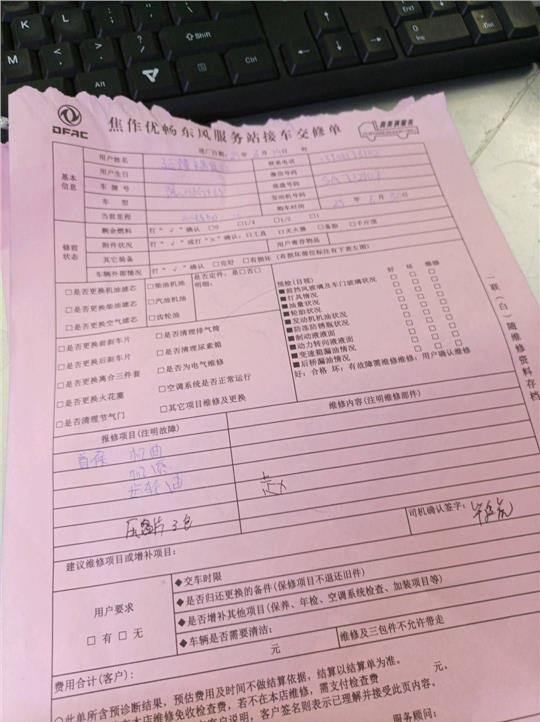 Shift
Alt
Alt
Ctrl
0
Ins
Del
Enter
DFAC
焦作优畅东风服务站接车交修单
高兴满服务
进厂日期: 年 月 日 时
基本信息
用户姓名
联系电话
用户生日
微信号码
车牌号
底盘号码
车 型
发动机号码
当前里程
购车时间
年 月 日
修前状态
剩余燃油
打“√”确认 □0 □1/4 □1/2 □1
附件状况
打“√”或打“×”确认:□工具 □灭火器 □备胎 □千斤顶
其它装备
用户寄存物品
车辆外部情况
打“√”确认 □完好 □有损坏(有损坏部位标注有下意左图)
□是否更换机油滤芯
□柴油机油
是否定件:是□否□
明细:
□是否更换柴油滤芯
□汽油机油
□是否更换空气滤芯
□齿轮油
预检(目视) 好 坏 维修
■前挡风玻璃及车门玻璃状况 □ □ □
■灯具情况 □ □ □
■油量状况 □ □ □
■轮胎状况 □ □ □
■发动机机油状况 □ □ □
■防冻防锈瓶状况 □ □ □
■制动液液面 □ □ □
■动力转向液液面 □ □ □
■变速箱漏油情况 □ □ □
■后桥漏油情况 □ □ □
好:合格 坏:有故障需维修维修:用户确认维修
□是否更换前刹车片
□是否清理排气筒
□是否更换后刹车片
□是否清理尿素箱
□是否更换离合三件套
□是否为电气维修
□是否更换火花塞
□空调系统是否正常运行
□是否清理节气门
□其它项目维修及更换
二联(白)随维修资料存档
报修项目(注明故障)
维修内容(注明维修部件)
首保 机油
机滤
齿轮油
司机确认签字:
建议维修项目或增补项目:
用户要求
□有 □无
◆交车时限
◆是否归还更换的备件(保修项目不退还旧件)
◆是否增补其他项目(保养、年检、空调系统检查、加装项目等)
◆车辆是否需要清洁:
元
维修及三包件不允许带走
费用合计(客户):
元,
◇此单所含预诊断结果,预估费用及时间不做结算依据,结算以结算单为准。
在本店维修免收检查费,若不在本店维修,需支付检查费
客户说明,客户签名则表示已理解并接受此页内容,
服务顾问: